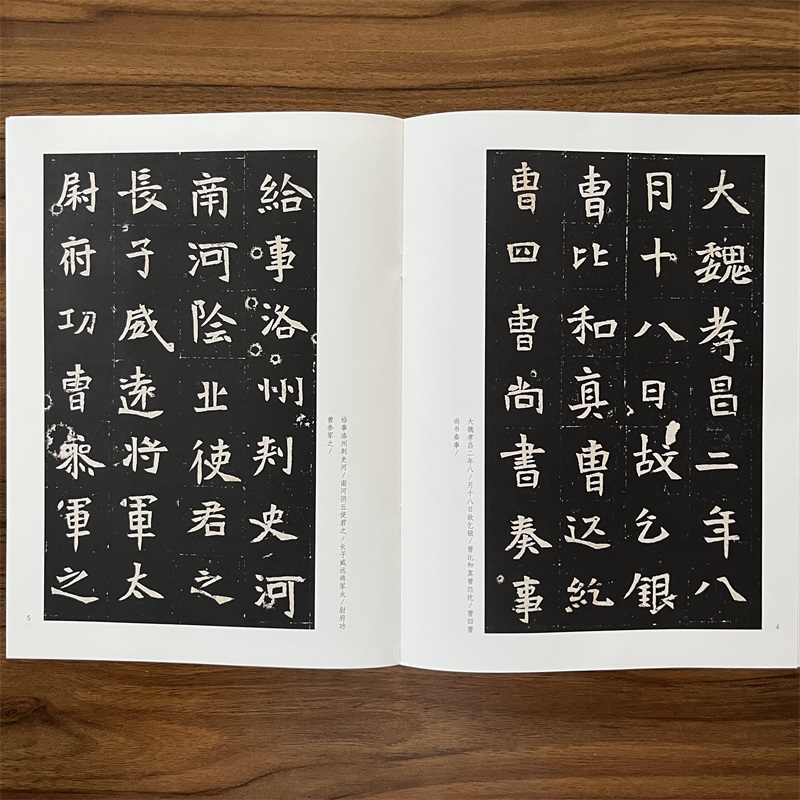 大魏孝昌二年八
月十八日故乞銀
曹比和真曹匹紇
曹四曹尚書奏事
大魏孝昌二年八/月十八日故乞银/曹比和真曹匹纥/曹四曹
尚书奏事/
4
給事洛州刾史河
南河陰丘使君之
長子威遠將軍太
尉府功曹參軍之
给事洛州刺史河/南河阴丘使君之/长子威远将军太/尉府功
曹参军之/
5